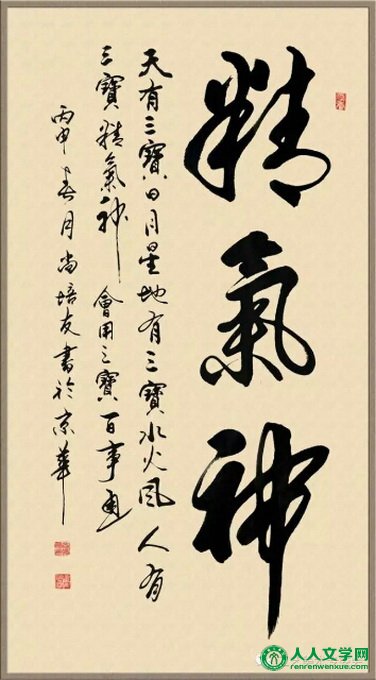 精氣神
天有三寶日月星地有三寶水火風人有
三寶精氣神會用三寶百事通
丙申春月尚培友書於京華
人人文学网
renrenwenxue.com